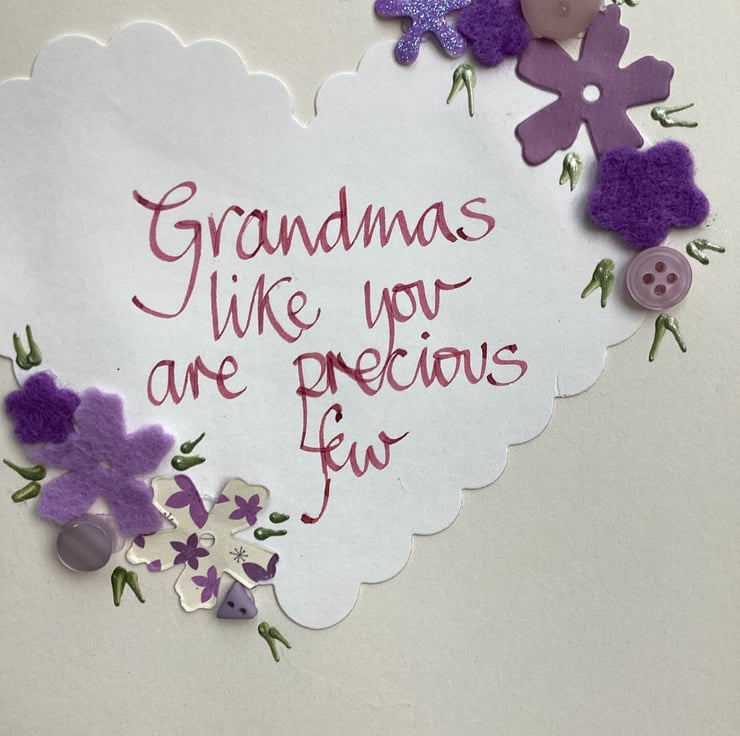 Grandmas
like you
are precious
few